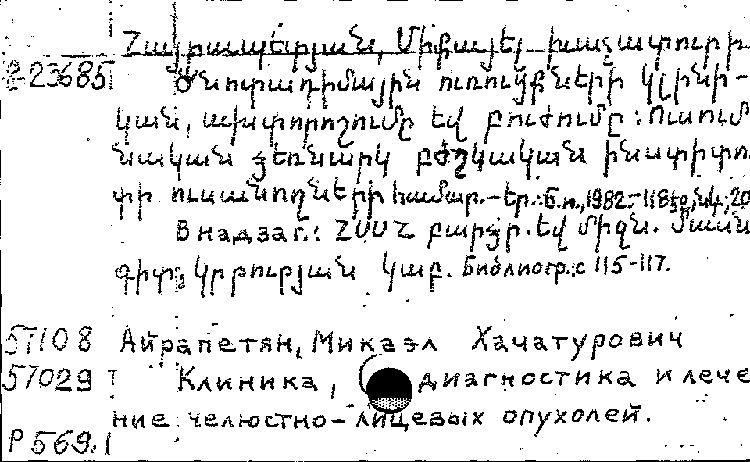 Հայրապետյան, Միքայել Խաչատուրի
2-23685 Ծնոտադիմային ուռուցքների կլինի-
կան, ախտորոշումը եվ բուժումը: Ուսում
նական ձեռնարկ բժշկական ինստիտո
տի ուսանողների համար.-Եր.: Б.и.,1982.-118 էջ, նկ; 20
В надзаг.: ՀՍՍՀ բարձր. եվ միջն. մասն
գիտ. կրթության կաբ. Библиогр.: с 115-117.
57108 Айрапетян, Микаэл Хачатурович
57029 Клиника, диагностика и лече
ние челюстно-лицевых опухолей.
Р 569.1